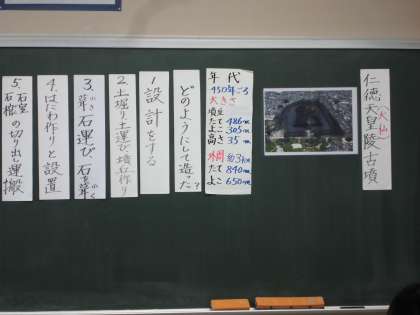 仁徳天皇陵古墳
(大仙)
年代
450年ごろ
大きさ
墳丘
たて 486m
よこ 305m
高さ 35m
外周 約3km
たて 840m
よこ 650m
どのようにして造った?
1 設計をする
2 土堀り土運び・墳丘作り
3、葺石運び、石葺
ふき
ふく
4、はにわ作りと設置
5、石室 石棺 の切り出し運搬